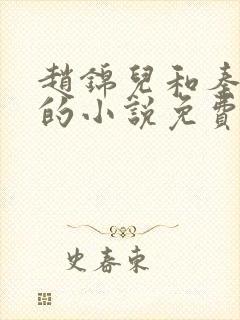 趙錦兒和秦
的小說免費
史春東